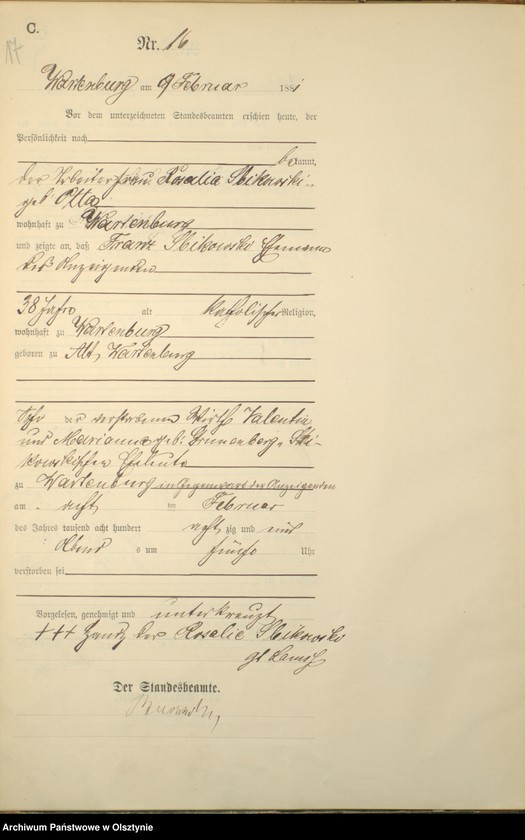 C.
17
Nr. 16
Wartenburg am 9 Februar 1881
Vor dem unterzeichneten Standesbeamten erschien heute, der
Persönlichkeit nach
bekannt,
der Arbeiterfrau Rosalia Sbikowski
geb Otta
wohnhaft zu Wartenburg
und zeigte an, daß Franz Sbikowski Ehemann
der Anzeigenden
38 Jahre alt katholischer Religion,
wohnhaft zu Wartenburg
geboren zu Alt Wartenburg
Sohn der verstorbenen Wirth Valentin
und Marianna geb: Grunenberg
Eheleute
zu Wartenburg in Gegenwart der Anzeigenden
am acht ten Februar
des Jahres tausend acht hundert acht zig und eins
Abends um fünf Uhr
verstorben sei
Vorgelesen, genehmigt und unterkreuzt
+++ Handz der Rosalie Sbikowski
Der Standesbeamte.
Archiwum Państwowe w Olsztynie